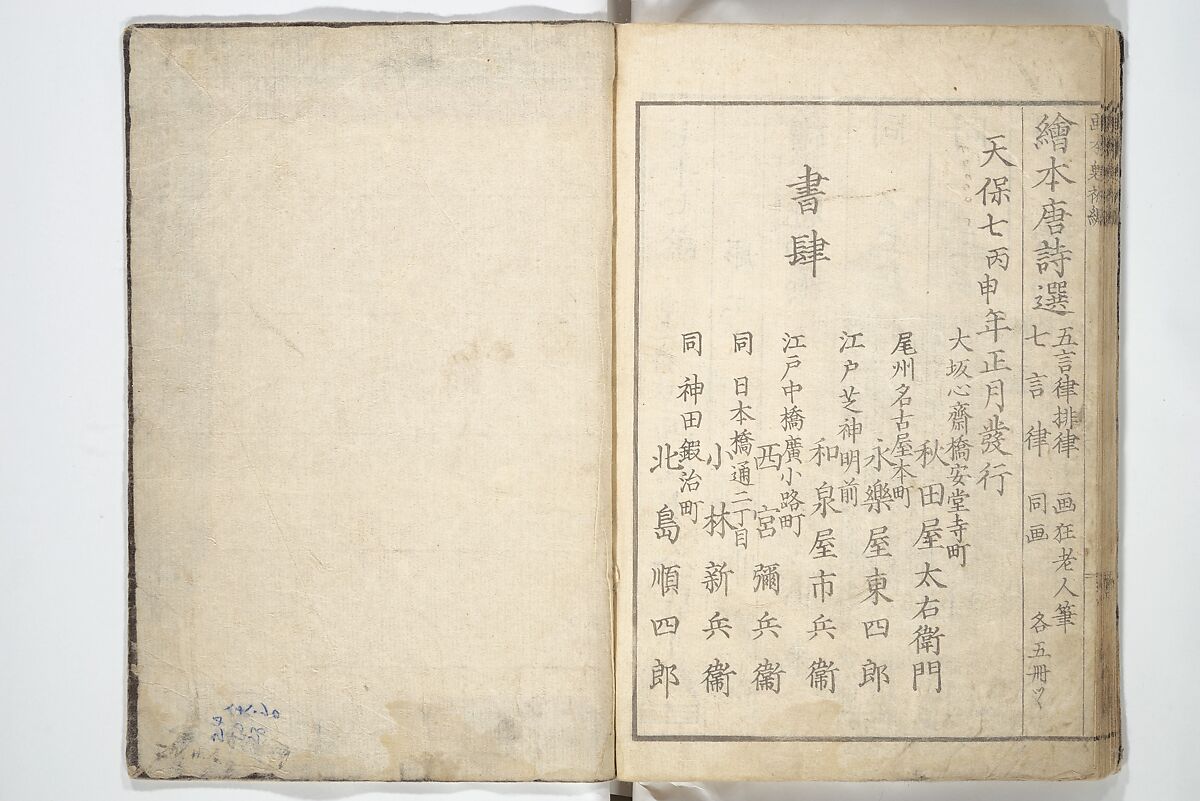 繪本唐詩選
五言律排律 画狂老人筆
七言律 同画 各五冊ツヽ
天保七丙申年正月發行
書肆
大坂心齋橋安堂寺町
秋田屋太右衛門
尾州名古屋本町
永樂屋東四郎
江戸芝神明前
和泉屋市兵衞
江戸中橋廣小路町
西宮彌兵衞
同日本橋通二丁目
小林新兵衞
同神田鍜治町
北島順四郎